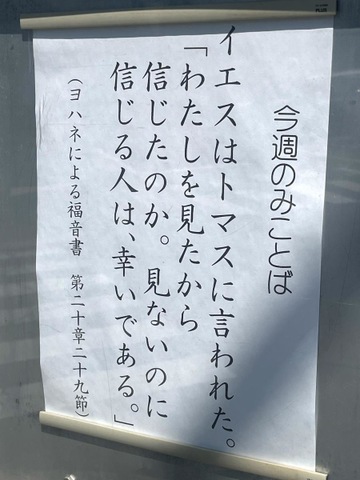 今週のみことば
イエスはトマスに言われた。
「わたしを見たから
信じたのか。見ないのに
信じる人は、幸いである。」
（ヨハネによる福音書　第二十章二十九節）